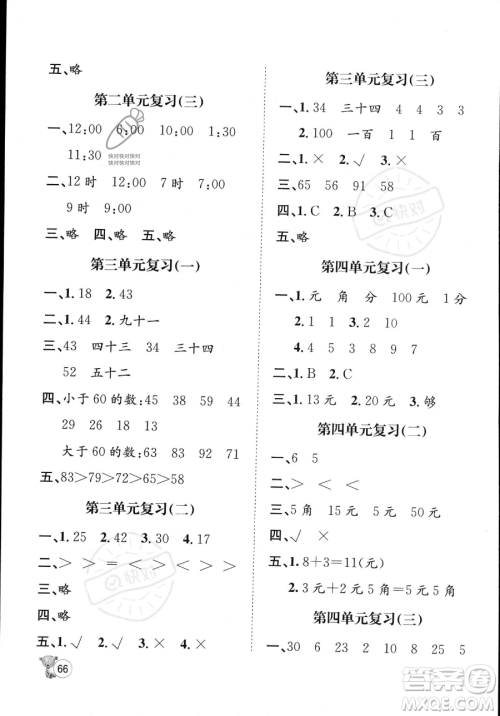 五、略
第二单元复习(三)
一、12:00 6:00 10:30 12:00
11:30
快对快对快对
快对快对快对
二、12时 12时 7时 10时
9时 9时
三、略 四、略 五、略
第三单元复习(一)
一、1.18 2.43
二、1.44 2.九十一
三、43 四十三 34 三十四
52 五十二
四、小于60的数:45 48 54
29 26 18 13
大于60的数:82 74 92
五、83>79>72>65>58
第三单元复习(二)
一、1.25 2.42 3.30 4.17
二、> > = > < <
三、略
四、略
五、1.√ 2.√ 3.× 4.×
66
第三单元复习(三)
一、1.34 三十四 4 4 3 3
2.100 一百 1 1
二、1.× 2.√ 3.√ 4.×
三、65 56 31 91 58
四、1.C 2.B 3.C
五、略
第四单元复习(一)
一、1.元 角 分 100元 1分
2.4 5 1 3 8 9 7
二、1.B 2.C
三、1.10元 2.20元 3.够
第四单元复习(二)
一、6 5
二、> > < <
三、8元 6元 5角 5角
四、√ ×
五、1.8+3=11(元)
2.3元+2元5角=5元5角
第四单元复习(三)
一、30 6 23 2 5 10
快对
答案圈
MXQE.COM